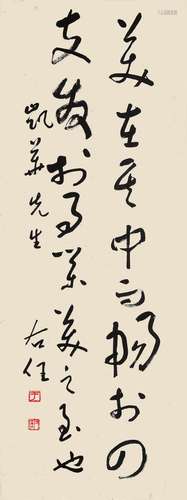 美在其中而暢於四
支發於事業美之至也
凱華先生
右任